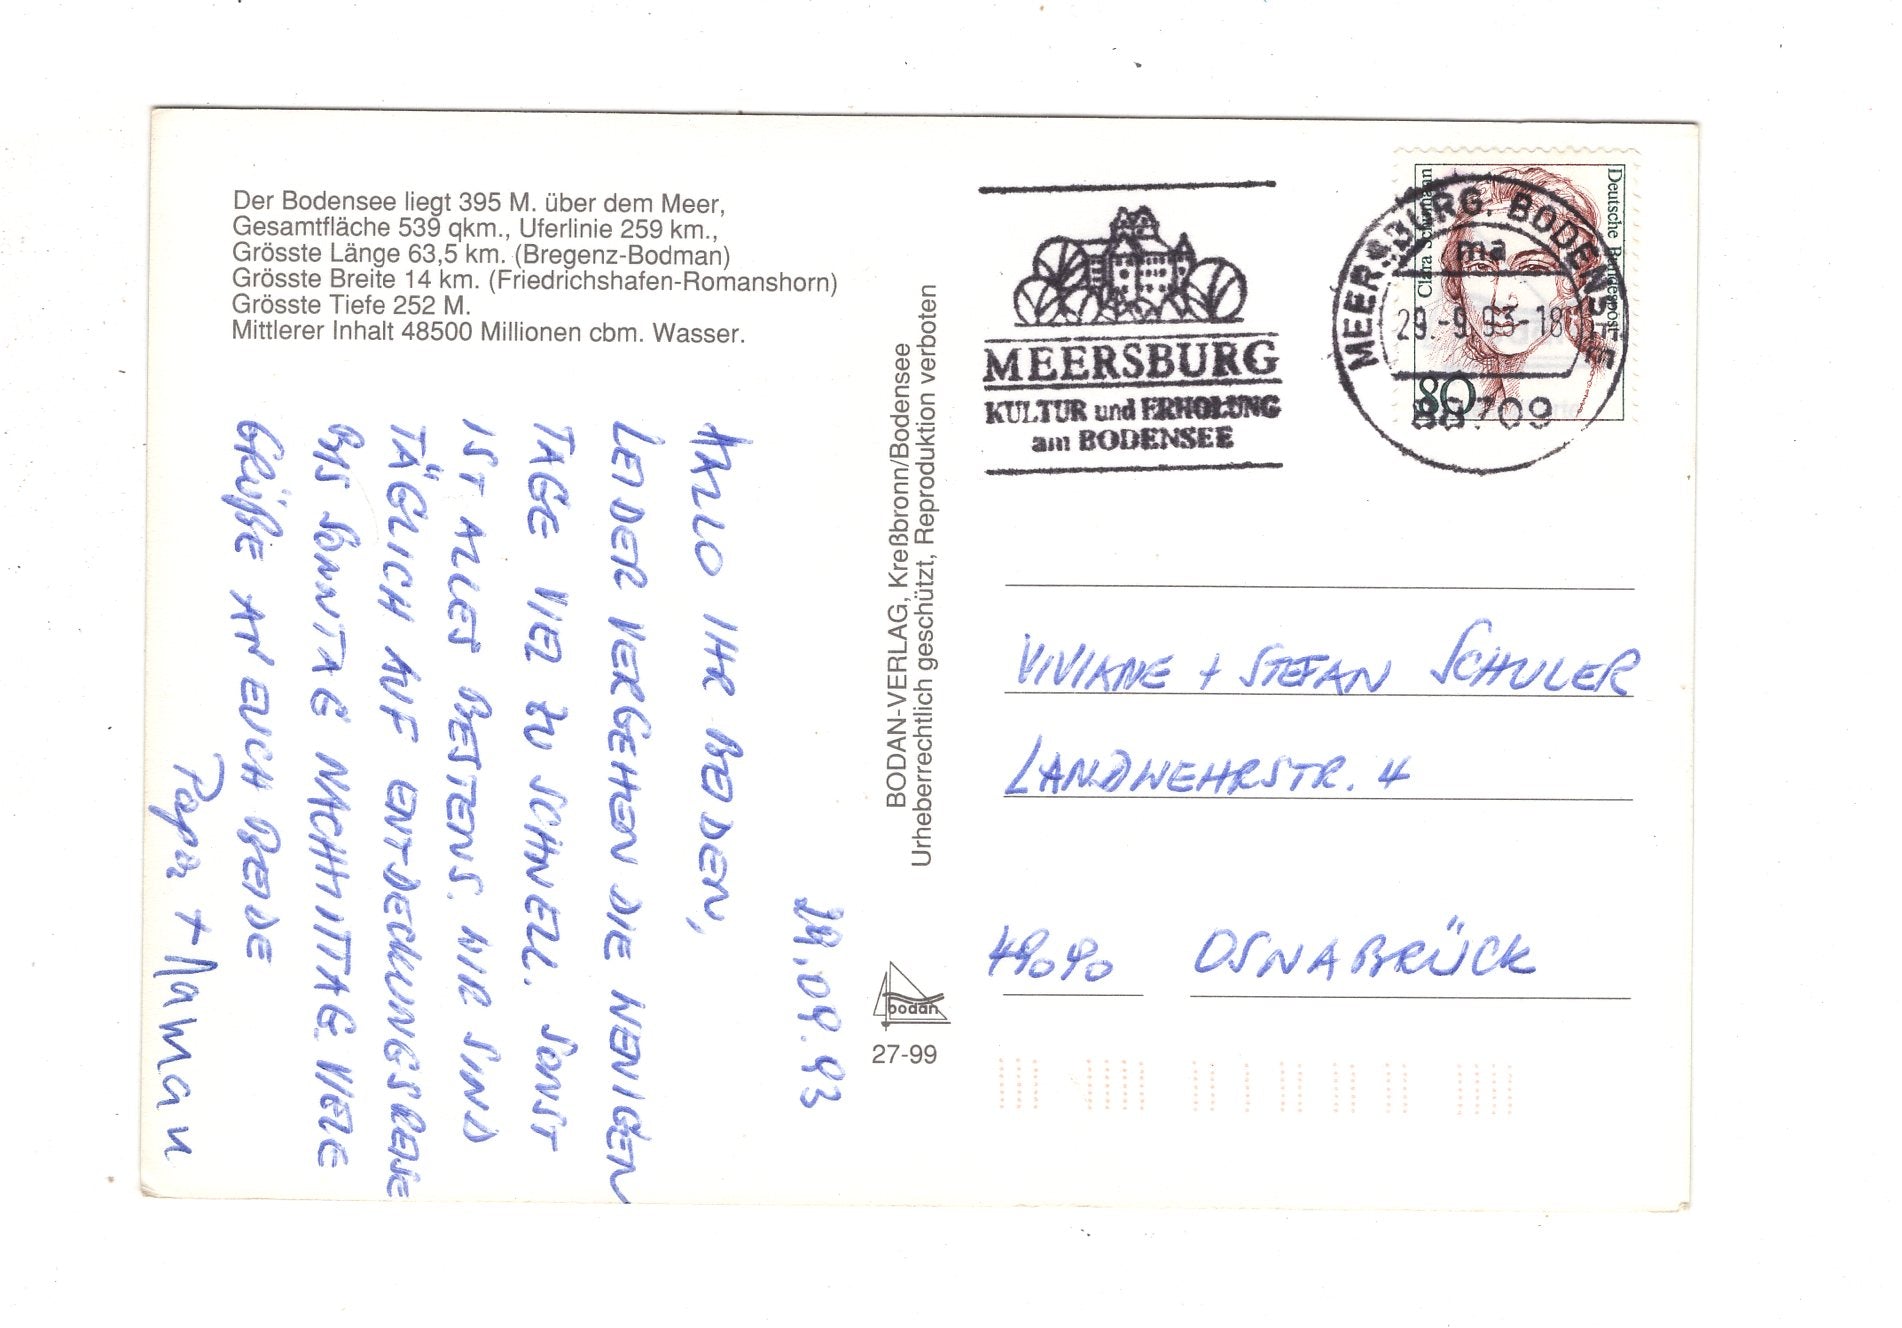 Der Bodensee liegt 395 M. über dem Meer,
Gesamtfläche 539 qkm., Uferlinie 259 km.,
Grösste Länge 63,5 km. (Bregenz-Bodman)
Grösste Breite 14 km. (Friedrichshafen-Romanshorn)
Grösste Tiefe 252 M.
Mittlerer Inhalt 48500 Millionen cbm. Wasser.
29.09.93
HALLO IHR BEIDEN,
LEIDER VERGEHEN DIE WENIGEN
TAGE VIEL ZU SCHNELL. SONST
IST ALLES BESTENS. WIR SIND
TÄGLICH AUF ENTDECKUNGSREISE
BIS SONNTAG NACHMITTAG. VIELE
GRÜßE AN EUCH BEIDE
Papa + Maman
BODAN-VERLAG, Kreßbronn/Bodensee
Urheberrechtlich geschützt, Reproduktion verboten
bodan
27-99
MEERSBURG
KULTUR und ERHOLUNG
am BODENSEE
Deutsche Bundespost
Clara Schumann
80
MEERSBURG, BODENSEE
ma
29.-9.93-18
88709
VIVIANE + STEFAN SCHULER
LANDWEHRSTR. 4
49090 OSNABRÜCK